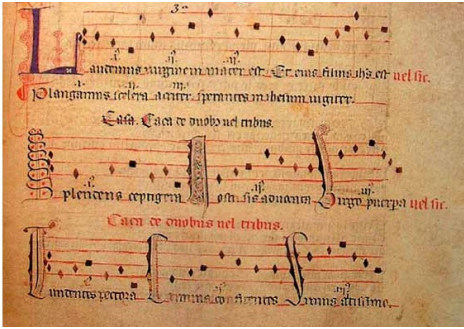 Laudemus uirginem mater est Et eius filius ihs est uel sic.
Plangamus scelera acriter sperantes in ihesum iugiter.
Caca de duobus uel tribus.
Splendens ceptigera Nostri sis aduocata Virgo puerpa uel sic.
Caca de duobus uel tribus.
Tundentes pectora Crimina confitentes Simus altissimo.